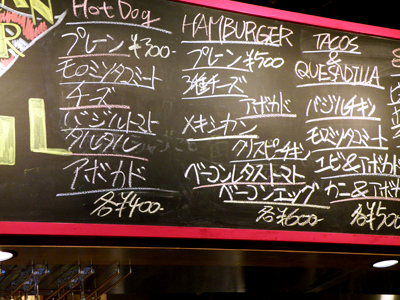 Hot Dog
プレーン ¥300-
モロミソタコミート
チーズ
バジルトマト
タルタル
アボカド
各¥400-
HAMBURGER
プレーン ¥500
3種チーズ
アボカド
メキシカン
クリスピーチキン
ベーコンレタストマト
ベーコンエッグ
各¥600-
TACOS
&
QUESADILLA
バジルチキン
モロミソタコミート
エビ&アボカド
カニ&アボカド
各¥500